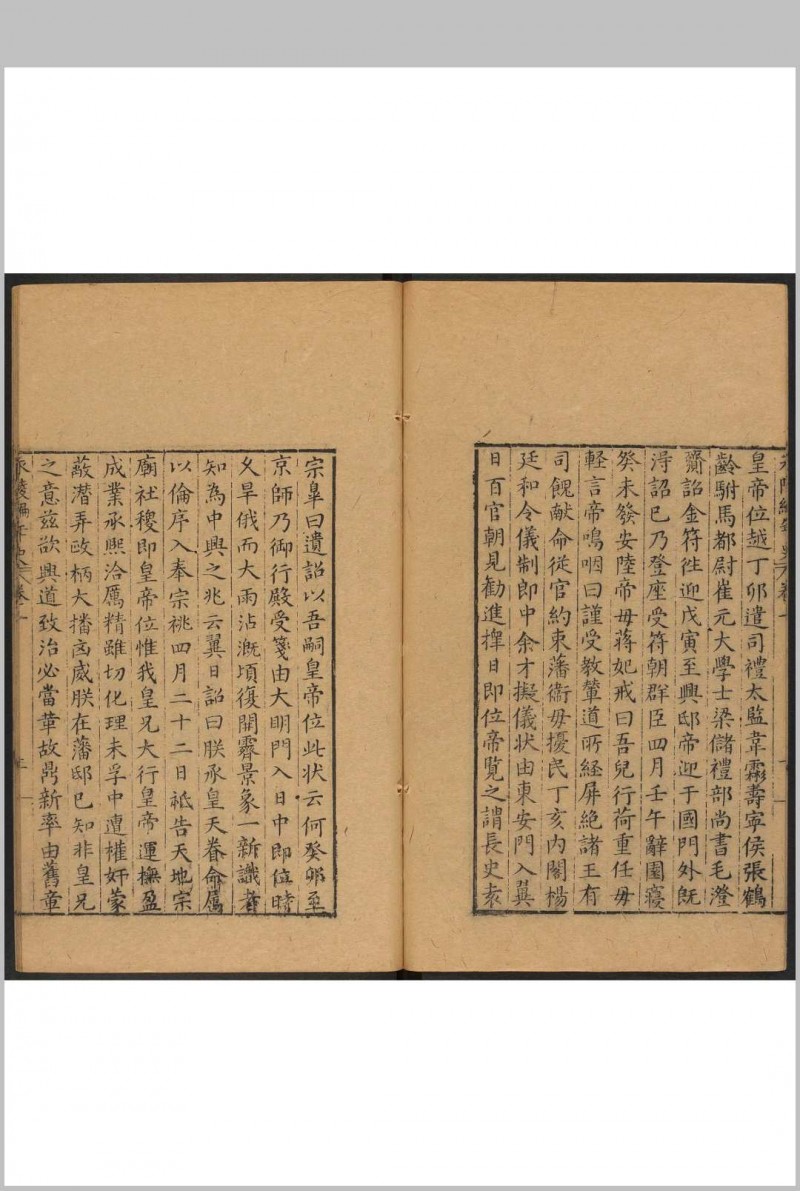 皇帝位越丁卯遣司禮太監韋霦壽寧侯張鶴
齡駙馬都尉崔元大學士梁儲禮部尚書毛澄
齎詔金符徃迎戊寅至興邸帝迎于國門外旣
淂詔已乃登座受符朝群臣四月壬午辭園寑
癸未發安陸帝毋蔣妃戒曰吾兒行荷重任毋
輕言帝嗚咽曰謹受教輦道所經屏絶諸王有
司餽献命從官約束藩衛毋擾民丁亥内閣楊
廷和令儀制郎中余才擬儀状由東安門入翼
日百官朝見勸進擇日即位帝覽之謂長史袁
宗臯曰遺詔以吾嗣皇帝位此状云何癸卯至
京師乃御行殿受箋由大明門入日中即位時
乆旱俄而大雨沾漑頃復開霽景象一新識者
知為中興之兆云翼日詔曰朕承皇天眷命屬
以倫序入奉宗祧四月二十二日祗告天地宗
廟社稷即皇帝位惟我皇兄大行皇帝運撫盈
成業承熙洽厲精雖切化理未孚中遭權奸蒙
蔽潜弄政柄大播㐫威朕在藩邸已知非皇兄
之意兹欲興道致治必當革故鼎新率由舊章
永陵編年史 卷一